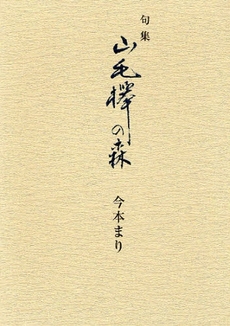 句集
山毛欅の森
今本まり